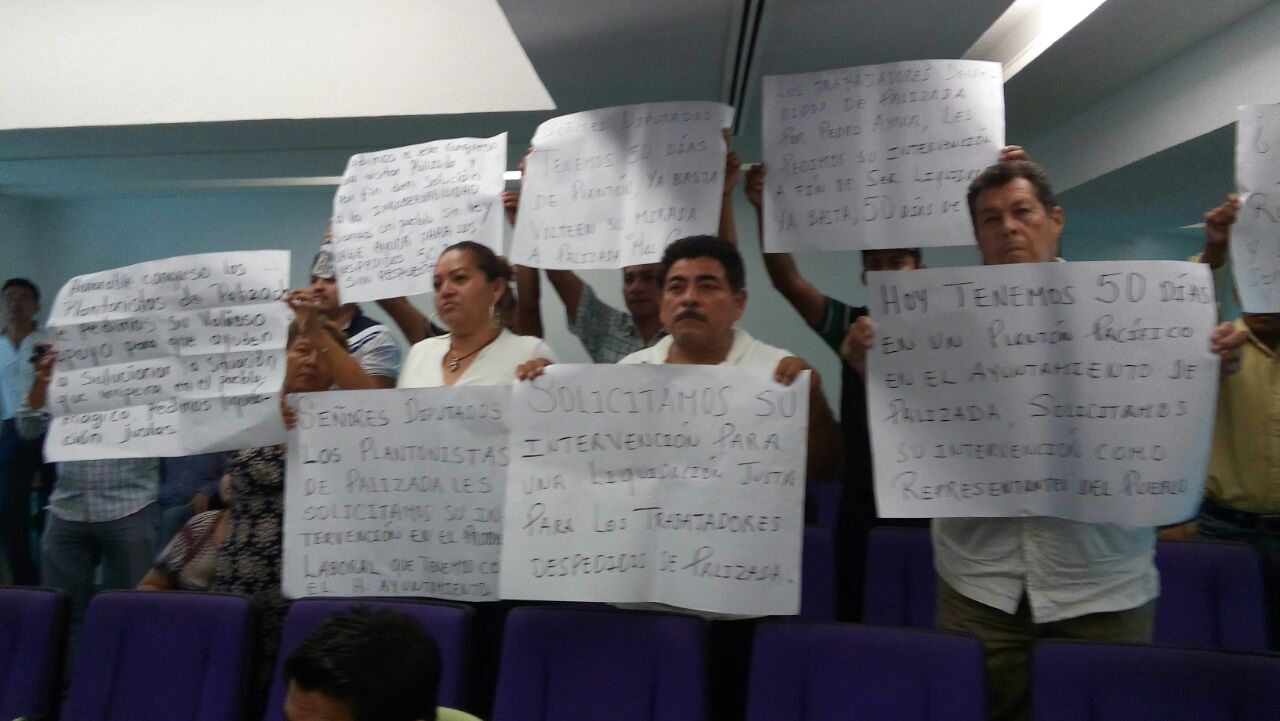 Honorable Congreso los
Plantonistas de Palizada
le Pedimos su Valioso
apoyo para que ayuden
a Solucionar la Situación
que impera en el pueblo
magico Pedimos liquida-
ción justas
a ese Congreso
Palizada y
Por fin den Solución
a la INGOBERNABILIDAD
un pueblo sin ley
AYUDA PARA LOS
DESPEDIDOS
SIN RESPUESTA
SEÑORES DIPUTADOS
TENEMOS 50 DÍAS
DE PLANTÓN, YA BASTA
VOLTEEN SU MIRADA
A PALIZADA
LOS TRABAJADORES DESPE-
DIDOS DE PALIZADA
POR PEDRO AYALA, LES
PEDIMOS SU INTERVENCIÓN
A FIN DE SER LIQUI
YA BASTA, 50 DÍAS DE
SEÑORES DIPUTADOS
LOS PLANTONISTAS
DE PALIZADA LES
SOLICITAMOS SU IN
TERVENCIÓN EN EL PROB
LABORAL QUE TENEMOS CO
EL H. AYUNTAMIENTO
SOLICITAMOS SU
INTERVENCIÓN PARA
UNA LIQUIDACIÓN JUSTA
PARA LOS TRABAJADORES
DESPEDIDOS DE PALIZADA.
HOY TENEMOS 50 DÍAS
EN UN PLANTÓN PACÍFICO
EN EL AYUNTAMIENTO DE
PALIZADA, SOLICITAMOS
SU INTERVENCIÓN COMO
REPRESENTANTES DEL PUEBLO